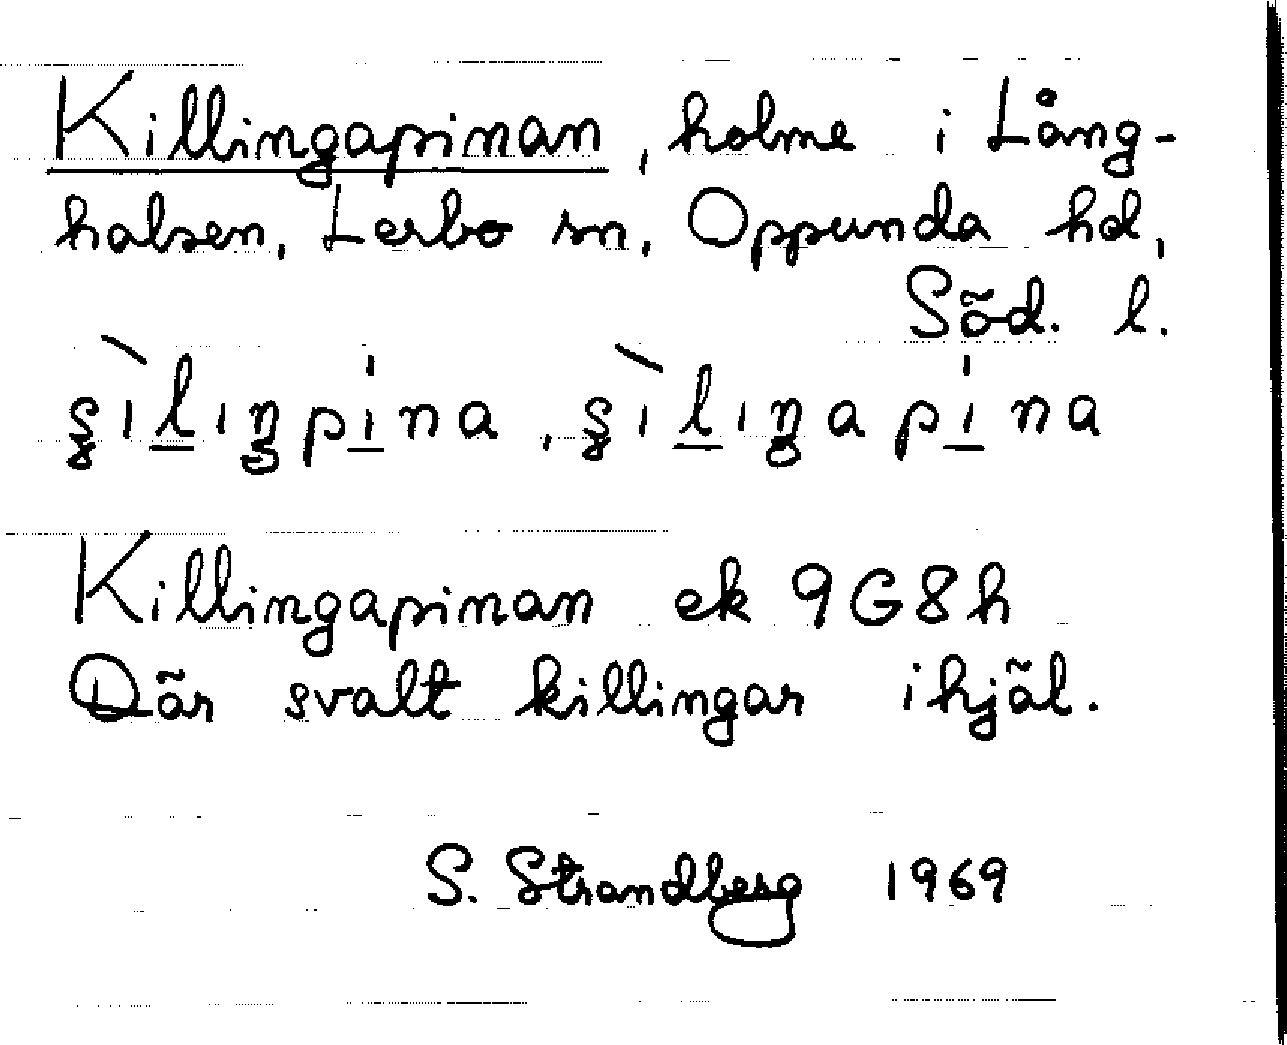 Killingapinan, holme i Lång-
halsen, Lerbo sn, Oppunda hd,
Söd. l.
ʂìlıŋpı̍na, ʂìlıŋapı̍na
Killingapinan ek 9G8h
Där svalt killingar ihjäl.
S. Strandberg 1969